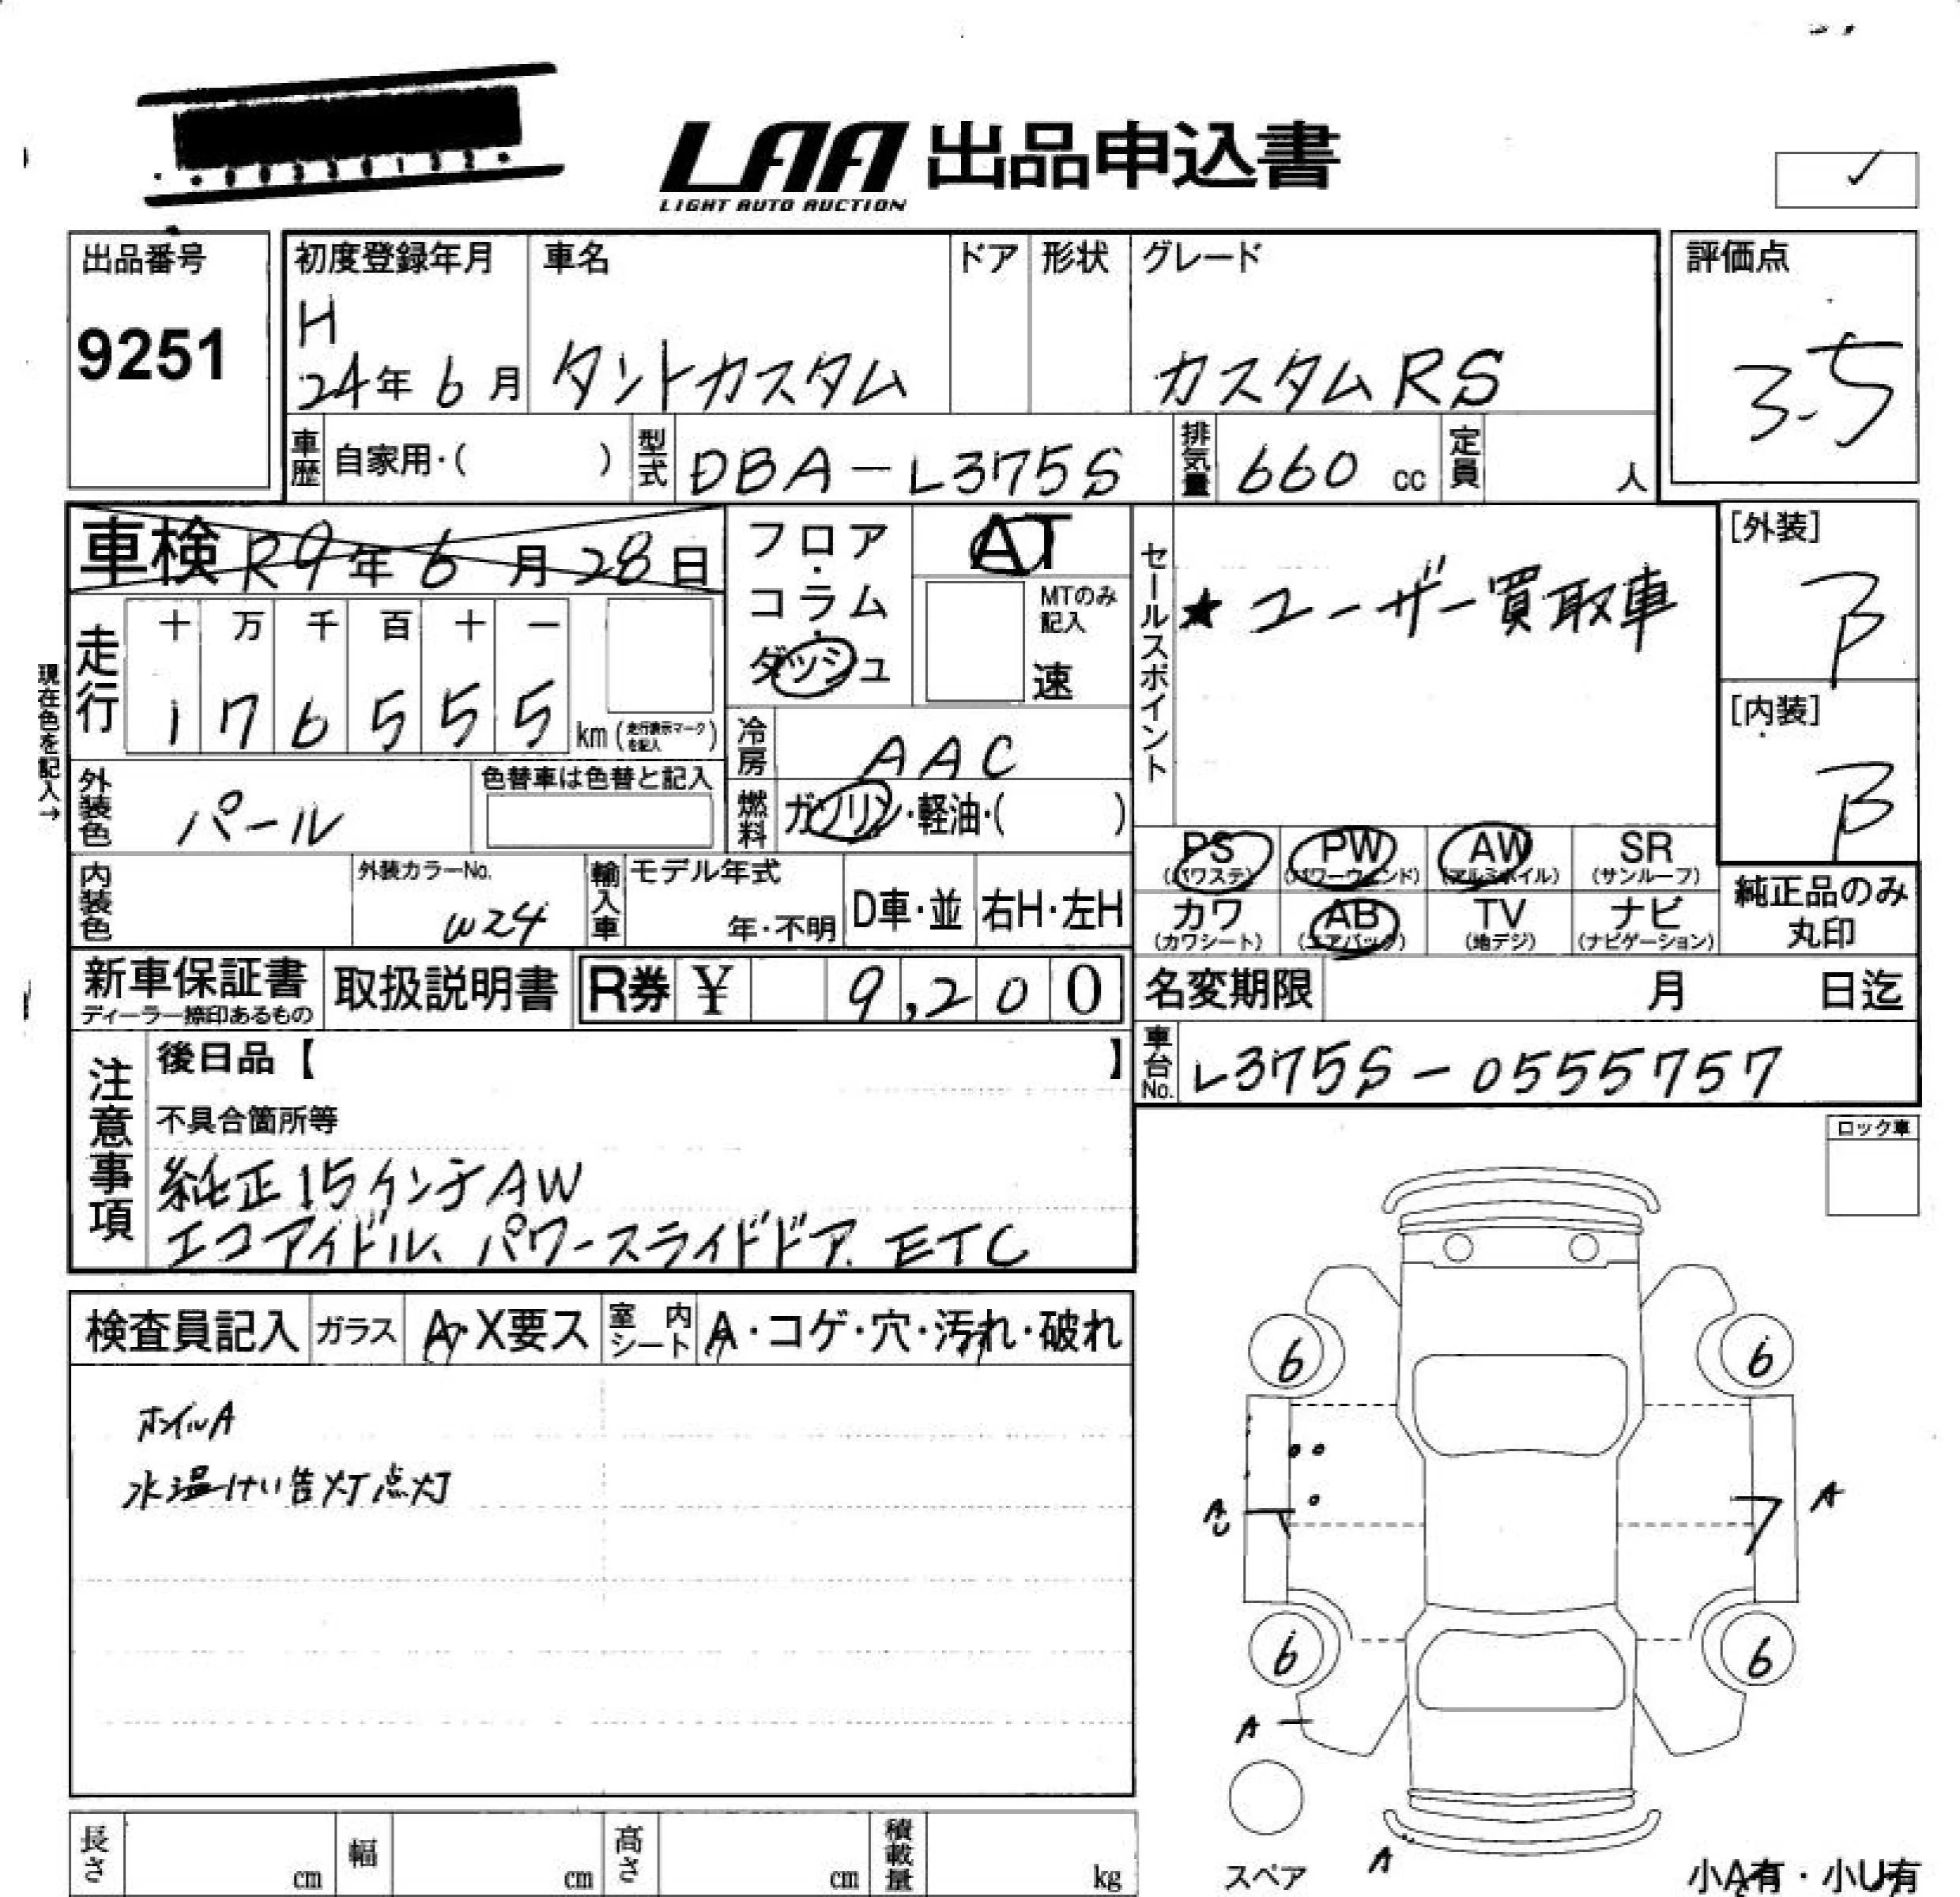 LAA 出品申込書
LIGHT AUTO AUCTION
✓
出品番号
9251
初度登録年月 車名 ドア 形状 グレード
H
24年 6月 タントカスタム カスタムRS
評価点
3.5
車歴 自家用・( ) 型式 DBA-L375S 排気量 660 cc 定員 人
車検 R9年 6月 28日
フロア・コラム・ダッシュ
AT
MTのみ記入
速
セールスポイント
★ユーザー買取車
[外装]
B
[内装]
B
現在色を記入→
走行
十 万 千 百 十 一
1 7 6 5 5 5 km (走行表示マークを記入)
冷房 AAC
外装色 パール
色替車は色替と記入
燃料 ガソリン・軽油・( )
PS (パワステ) PW (パワーウィンド) AW (アルミホイル) SR (サンルーフ)
カワ (カワシート) AB (エアバック) TV (地デジ) ナビ (ナビゲーション)
純正品のみ丸印
内装色
外装カラーNo.
W24
輸入車 モデル年式 年・不明 D車・並 右H・左H
新車保証書 ディーラー捺印あるもの 取扱説明書 R券 ¥ 9,200
名変期限 月 日迄
車台No. L375S-0555757
注意事項
後日品【 】
不具合箇所等
純正15インチAW
エコアイドル、パワースライドドア. ETC
ロック車
検査員記入 ガラス A・X要ス 室内シート A・コゲ・穴・汚れ・破れ
ホイルA
水温けい告灯点灯
6 6
A
A
6 6
A
A
スペア
小A有・小U有
長さ cm 幅 cm 高さ cm 積載量 kg